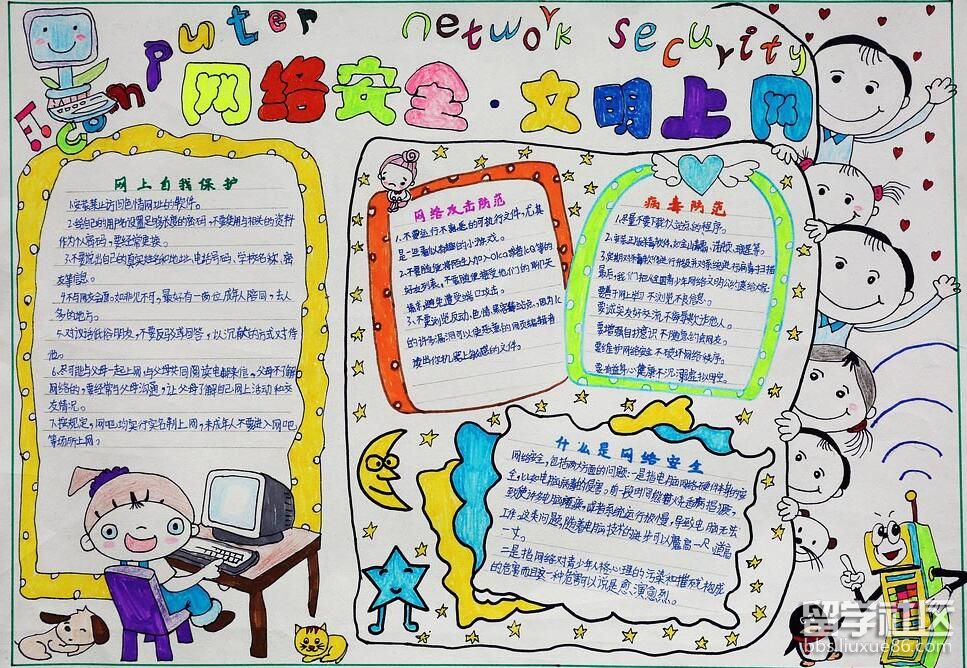 Computer network security
网络安全·文明上网
网上自我保护
1.安装禁止访问色情网址的软件。
2.给自己的用户名设置足够长度的密码,不要使用与相关的资料
作为个人密码,要经常更换。
3.不要说出自己的真实姓名和地址、电话号码、学校名称、密
友等信息。
4.不与网友会面。如非见不可,最好有一两位成年人陪同,去人
多的地方。
5.对谈话低俗朋友,不要反驳或回答,以沉默的方式对待
他。
6.尽可能与父母一起上网,与父母共同阅读电邮来信。父母不了解
网络的,要经常与父母沟通,让父母了解自己网上活动和交
友情况。
7.按规定,网吧均实行实名制上网,未成年人不要进入网吧
等场所上网。
网络攻击防范
1.不要运行不熟悉的可执行文件,尤其
是一些看似有趣的小游戏。
2.不要随便将陌生人加入
好友列表,不要随便接受他们的聊天
请求,避免遭受端口攻击。
3.不要浏览反动、色情、黑客等站点,因为
的许多漏洞可以使恶意的网页编辑者
读出你机器上敏感的文件。
病毒防范
1.尽量不要下载个人站点的程序。
2.安装正版杀毒软件,如金山毒霸、
3.定期对杀毒软件进行升级并对系统进行病毒扫描
最后,我们把《全国青少年网络文明公约》送给大家:
要善于网上学习 不浏览不良信息。
要诚实友好交流 不侮辱欺诈他人。
要增强自护意识 不随意约会网友。
要维护网络安全 不破坏网络秩序。
要有益身心健康 不沉溺虚拟时空。
什么是网络安全
网络安全,包括两方面的问题:一是指电脑网络硬件本身的安
全,比如电脑病毒的侵害,前一段时间熊猫烧香病毒猖獗,
致使许多电脑瘫痪,或者系统运行极慢,导致电脑无法
工作。这类问题,随着电脑技术的进步可以魔高一尺,道高
一丈。
二是指网络对青少年人格心理的污染和摧残,构成
的危害而且这一种危害可以说是愈演愈烈。
留学社区
bbs.liuxue86.com